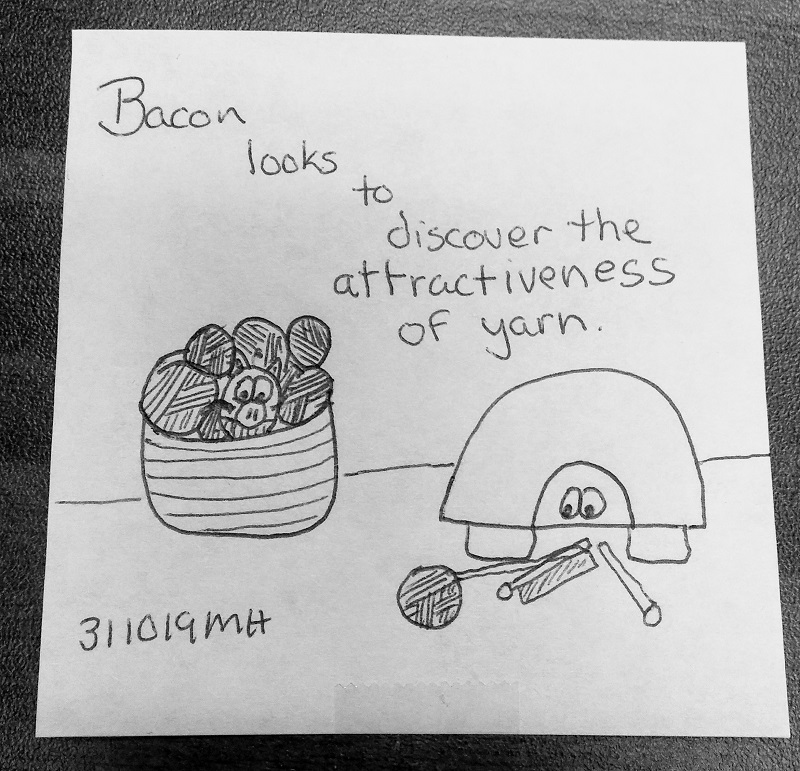 Bacon
looks
to
discover the
attractiveness
of yarn.
311019MH